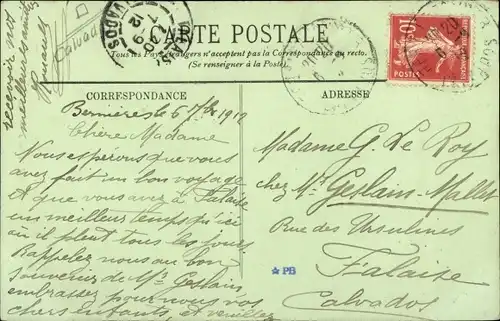 CARTE POSTALE
Tous les Pays étrangers n'acceptent pas la Correspondance au recto.
(Se renseigner à la Poste).
CORRESPONDANCE
ADRESSE
Bernières le 6 7bre 1912
Chère Madame
Nous espérons que vous
avez fait un bon voyage
et que vous avez à Falaise
un meilleur temps qu'ici
où il pleut tous les jours.
Rappelez nous au bon
souvenir de Mr Geslain,
embrassez pour nous vos
chers enfants, et veuillez
recevoir nos
meilleures amitiés
Calvados
Madame G. Le Roy
chez Mr Geslain-Mallet
Rue des Ursulines
Falaise
Calvados
10
POSTES
PB